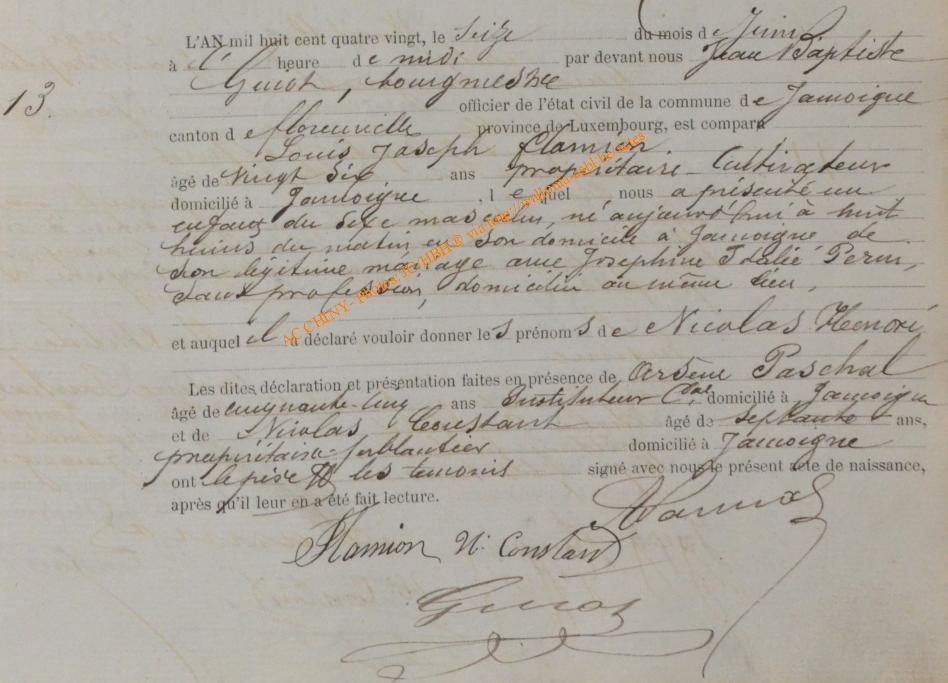 L'AN mil huit cent quatre vingt, le seize du mois de Juin
à l' heure de midi par devant nous Jean Baptiste
Guiot, bourgmestre
13.
officier de l'état civil de la commune de Jamoigne
canton de florenville province de Luxembourg, est comparu
Louis Joseph Flamion.
âgé de vingt six ans propriétaire - Cultivateur
domicilié à Jamoigne, lequel nous a présenté un
enfant du sexe masculin, né aujourd'hui à huit
heures du matin en son domicile à Jamoigne de
son légitime mariage avec Josephine Idalie Perin,
sans profession, domiciliée au même lieu,
et auquel il a déclaré vouloir donner les prénoms de Nicolas Henori
Les dites déclaration et présentation faites en présence de Arsène Paschal
âgé de cinquante-cinq ans Instituteur Cal domicilié à Jamoigne
et de Nicolas Constant âgé de septante ans,
propriétaire-ferblantier domicilié à Jamoigne
ont le père & les temoins signé avec nous le présent acte de naissance,
après qu'il leur en a été fait lecture.
Flamion N. Constant
Guiot
AC CHINY - Photos JC HBH® via http://wallonia-asbl.be/actes